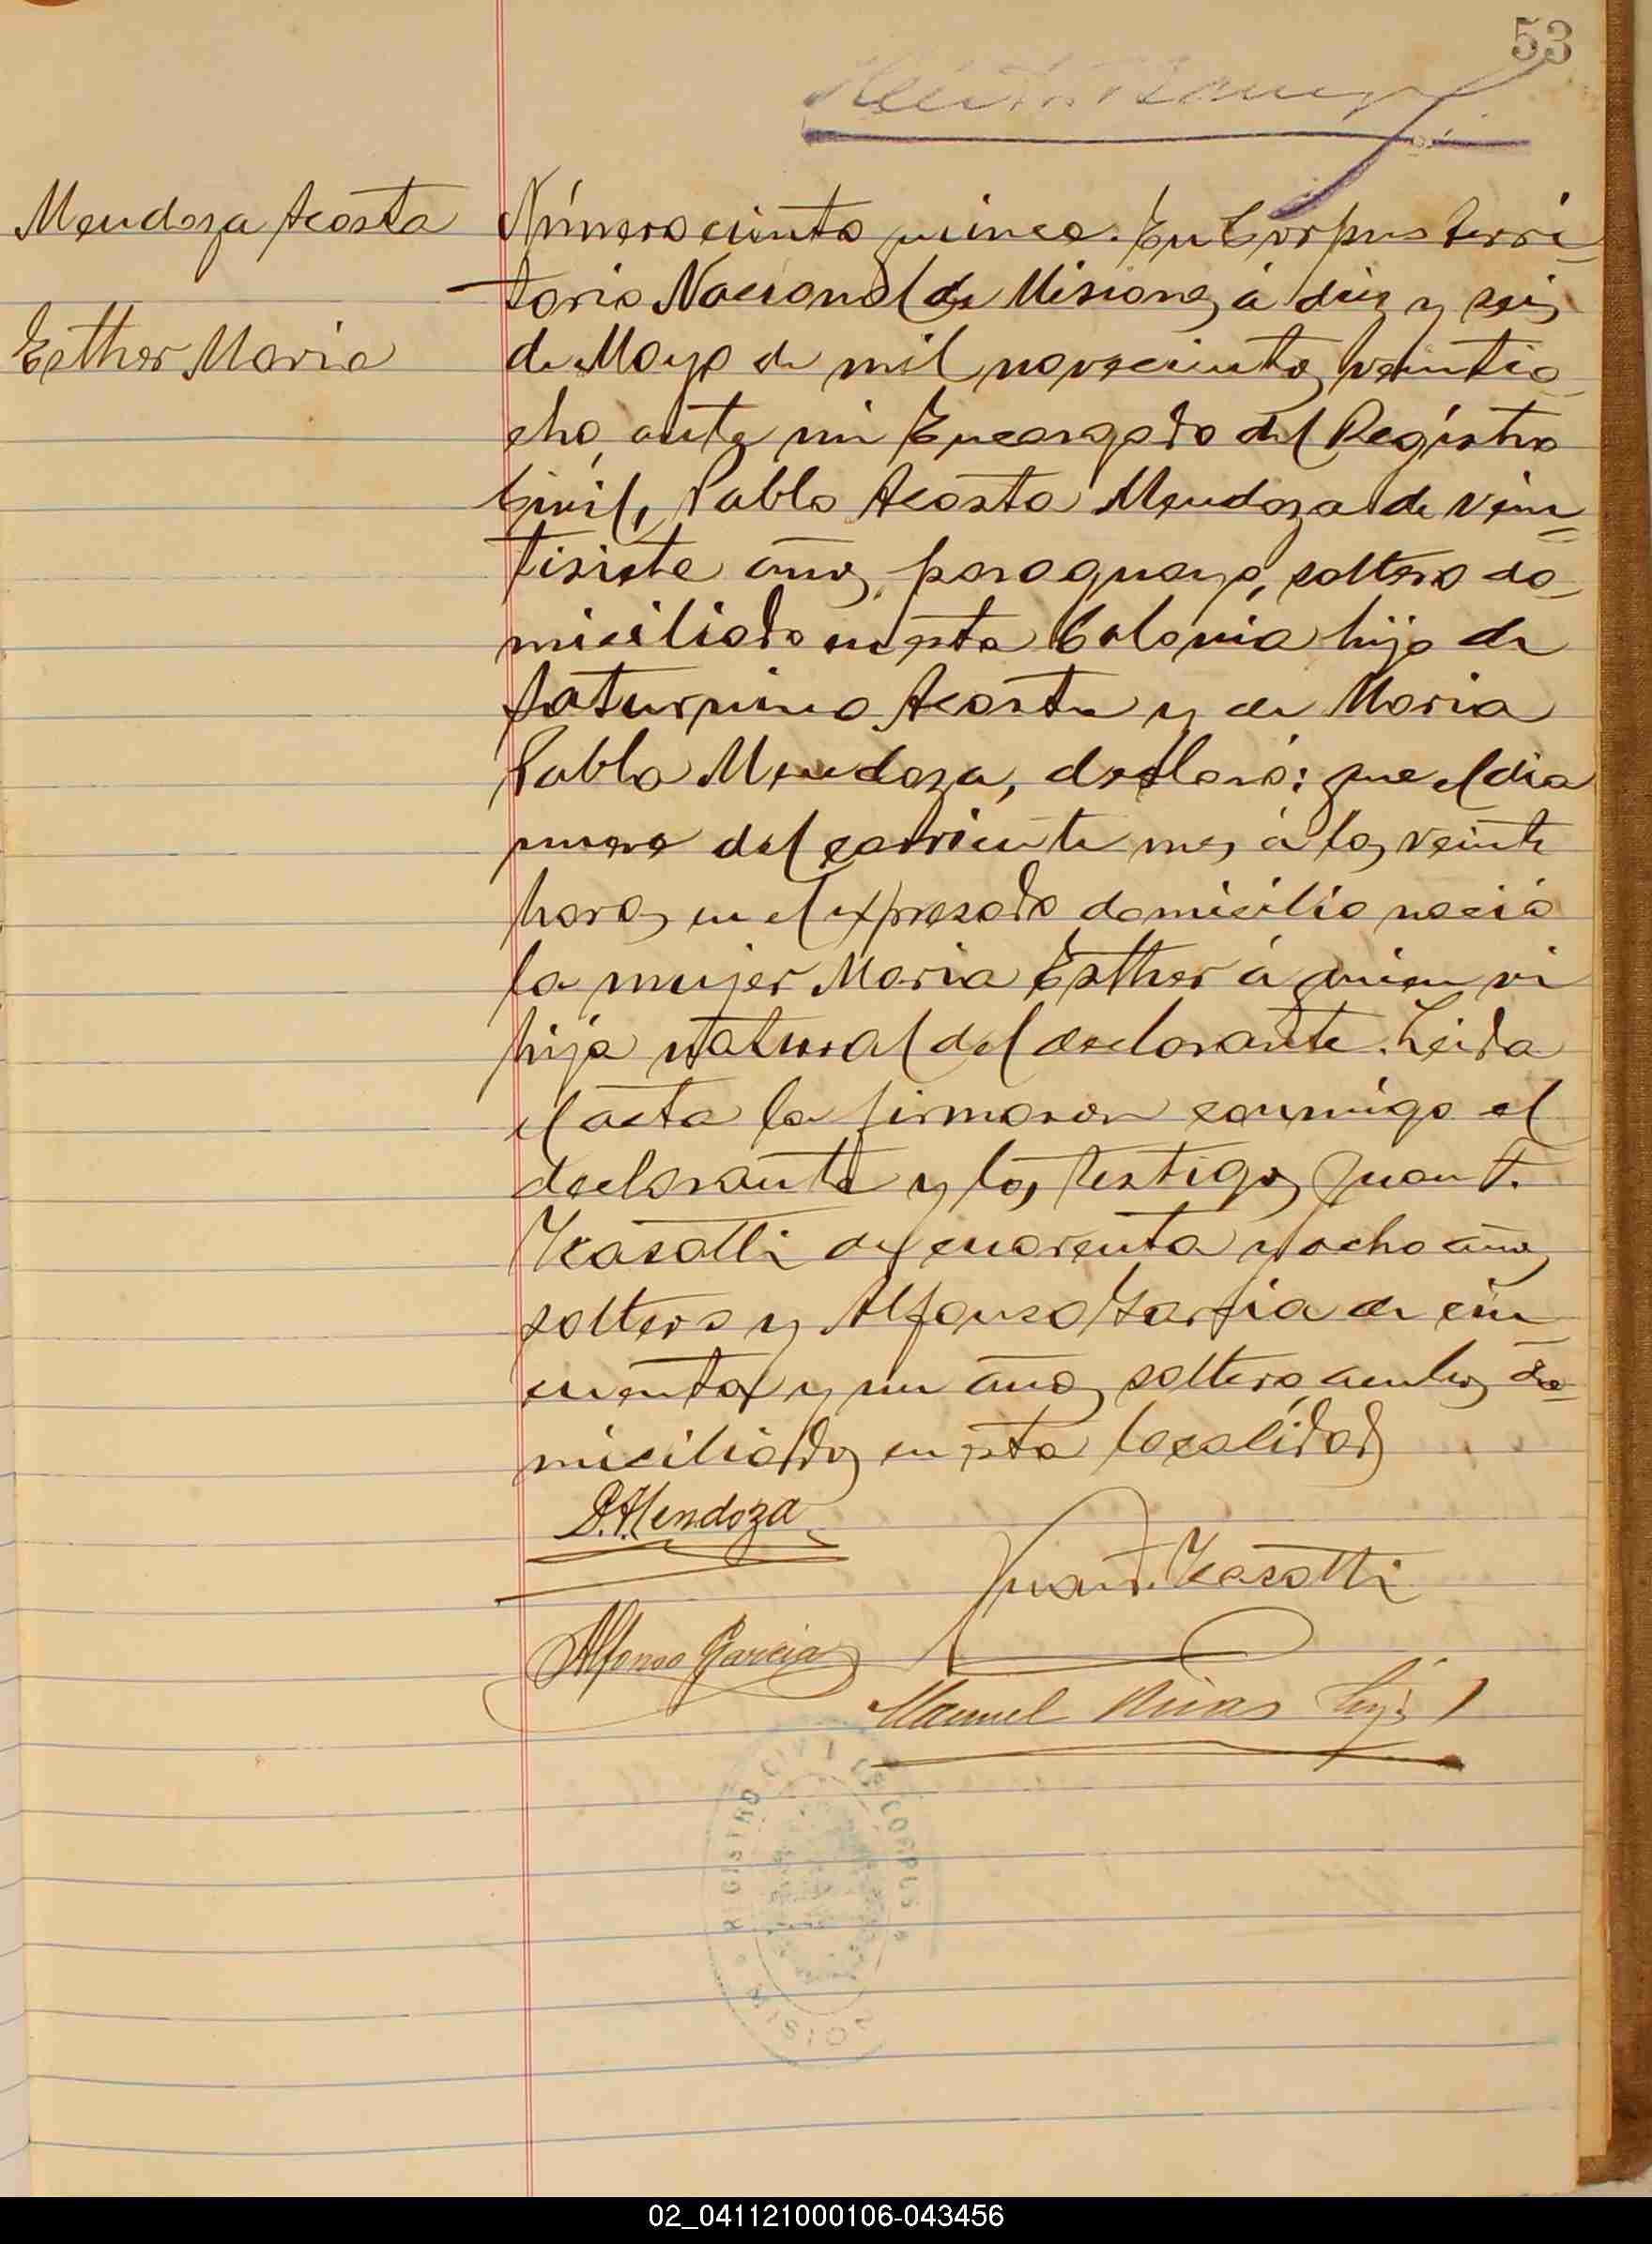 53
Mendoza Acosta
Esther Maria
Número ciento quince. En Corpus terri-
torio Nacional de Misiones á diez y seis
de Mayo de mil novecientos veintio-
cho, ante mi Encargado del Registro
Civil, Pablo Acosta Mendoza de vein-
tisiete años, paraguayo, soltero do-
miciliado en esta Colonia hijo de
Saturnino Acosta y de Maria
Pabla Mendoza, declaró: que el dia
nueve del corriente mes á las veinte
horas en el expresado domicilio nació
la mujer Maria Esther á quien vi
hija natural del declarante. Leida
el acta la firmaron conmigo el
declarante y los testigos Juan T.
Kasatti de cuarenta y ocho años
soltero y Alfonso Garcia de cin
cuenta y un años soltero ambos do-
miciliados en esta localidad
P.A. Mendoza
Juan T. Kasatti
Alfonso Garcia
Manuel Rivas
REGISTRO CIVIL DE CORPUS
MISIO
02_041121000106-043456